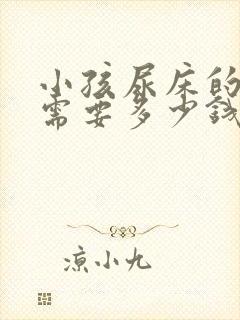 小孩尿床的
需要多少钱
凉小九